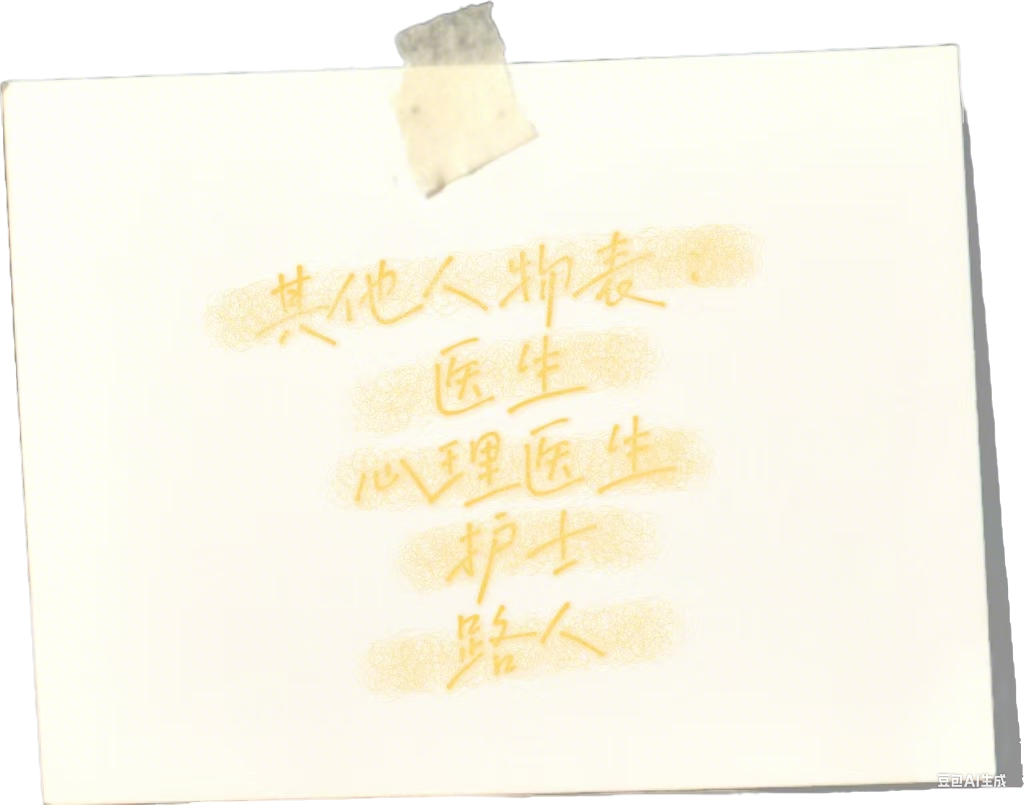 其他人物表：
医生
心理医生
护士
路人
豆包AI生成